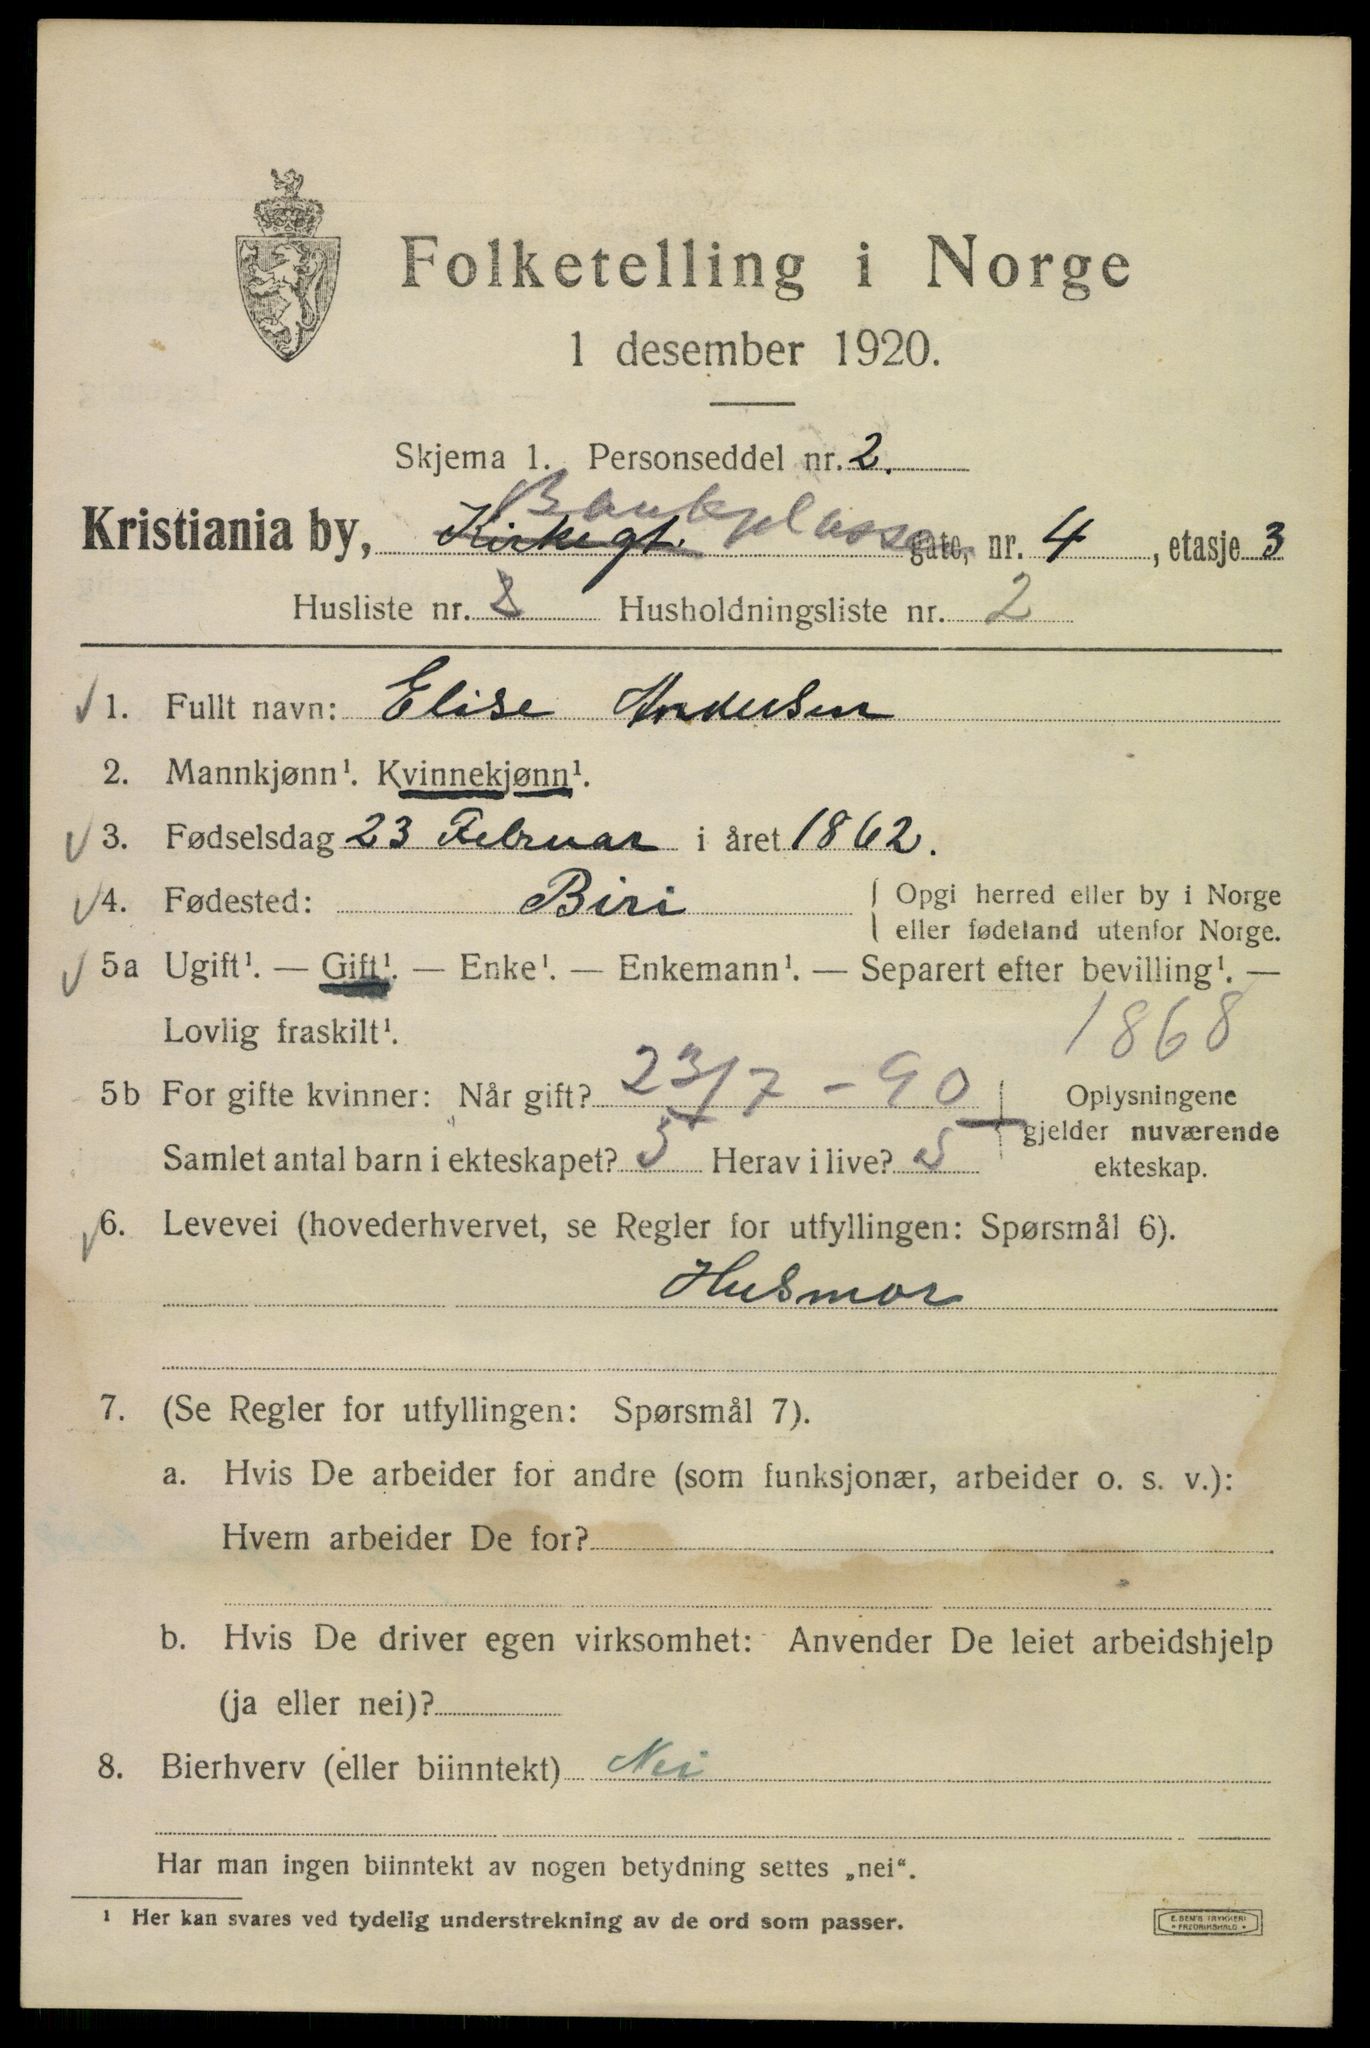 Folketelling i Norge
1 desember 1920.
Skjema 1. Personseddel nr. 2.
Bankplassen
Kristiania by, Kirkegt. gate, nr. 4, etasje 3
Husliste nr. Husholdningsliste nr. 2
1. Fullt navn: Elise Andersen
2. Mannkjønn¹. Kvinnekjønn¹.
3. Fødselsdag 23 Februar i året 1862.
4. Fødested: Biri { Opgi herred eller by i Norge
eller fødeland utenfor Norge.
5a Ugift¹. — Gift¹. — Enke¹. — Enkemann¹. — Separert efter bevilling¹. —
Lovlig fraskilt¹. 1868
5b For gifte kvinner: Når gift? 23/7 - 90 Oplysningene
gjelder nuværende
Samlet antal barn i ekteskapet? 5 Herav i live? 5 ekteskap.
6. Levevei (hovederhvervet, se Regler for utfyllingen: Spørsmål 6).
Husmor
7. (Se Regler for utfyllingen: Spørsmål 7).
a. Hvis De arbeider for andre (som funksjonær, arbeider o. s. v.):
Hvem arbeider De for?
b. Hvis De driver egen virksomhet: Anvender De leiet arbeidshjelp
(ja eller nei)?
8. Bierhverv (eller biinntekt) Nei
Har man ingen biinntekt av nogen betydning settes „nei“.
¹ Her kan svares ved tydelig understrekning av de ord som passer.
E. SEM'S TRYKKERI
FREDRIKSHALD